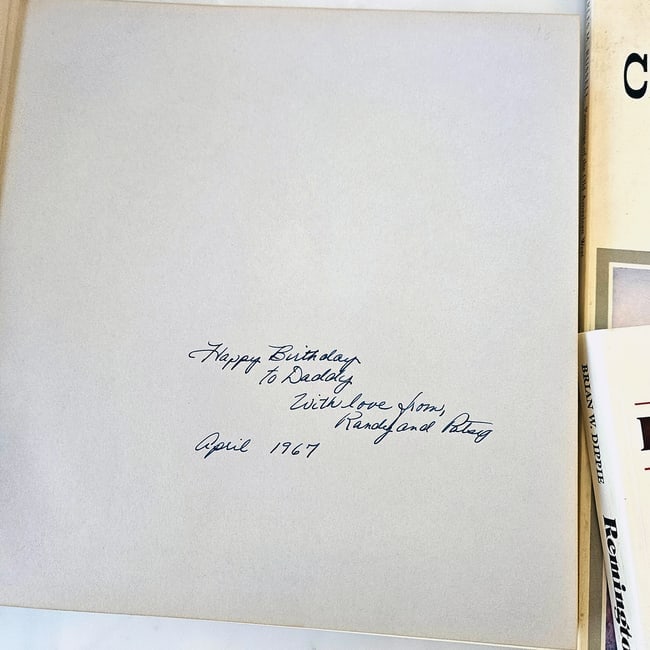 Happy Birthday
to Daddy
With love from,
Randy and Patsy
April 1967
C
BRIAN W. DIPPIE
Remingto